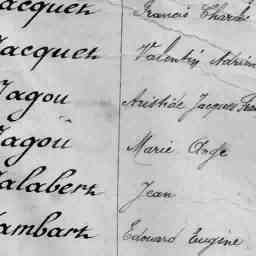 acquet Francis Charle
Jacquet Valentin Adrien
Jagou Aristide Jacques Fra
Jagoü Marie Ange
Jalabert Jean
Jambart Edouard Eugène